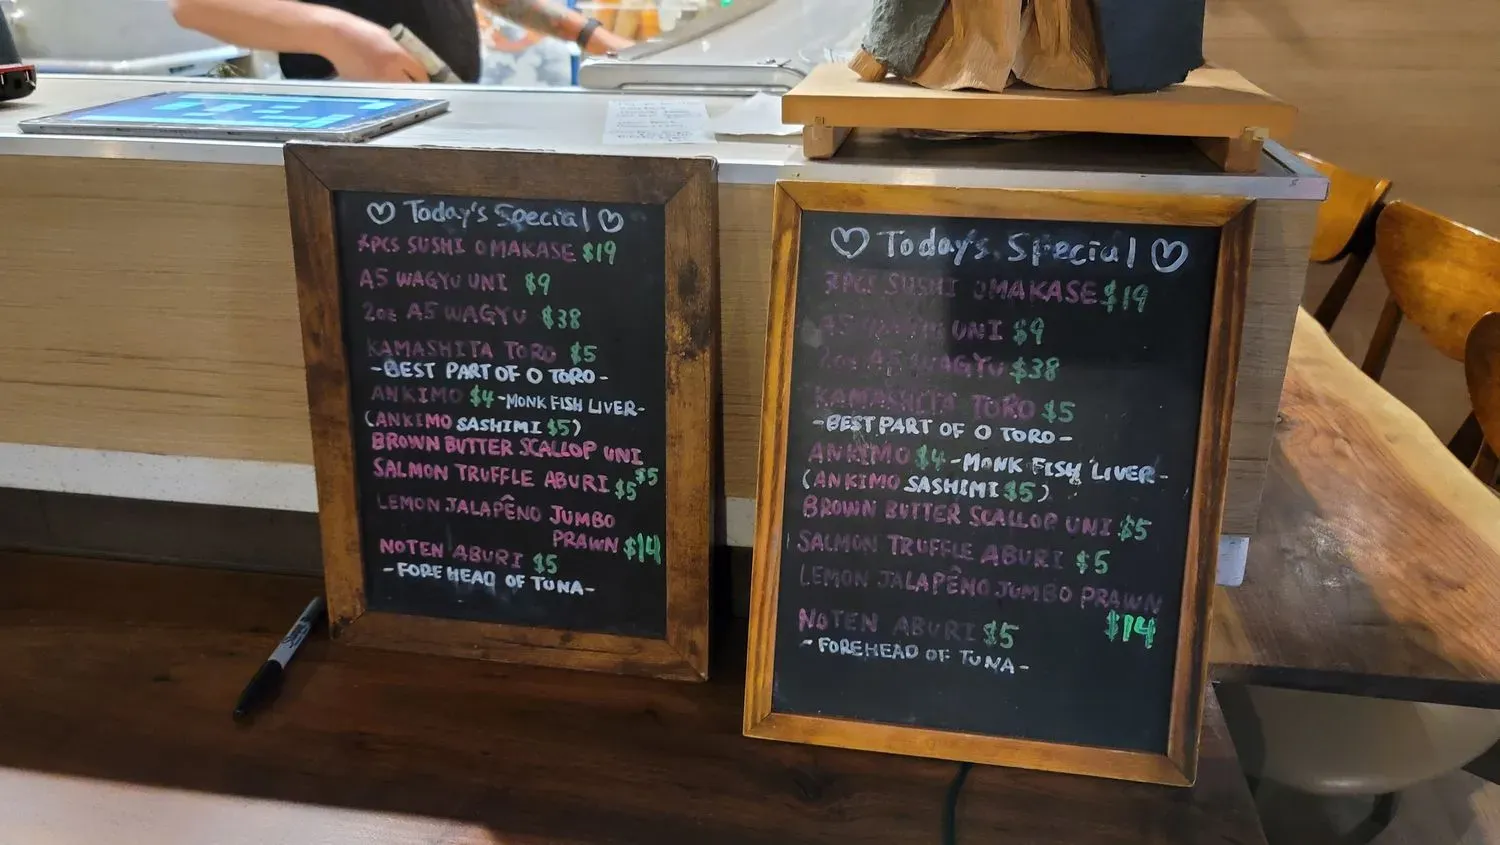 ♡ Today's Special ♡
PCS SUSHI OMAKASE $19
A5 WAGYU UNI $9
2oz A5 WAGYU $38
KAMASHITA TORO $5
-BEST PART OF O TORO-
ANKIMO $4 -MONK FISH LIVER-
(ANKIMO SASHIMI $5)
BROWN BUTTER SCALLOP UNI
$5
SALMON TRUFFLE ABURI $5
LEMON JALAPÊNO JUMBO
PRAWN $14
NOTEN ABURI $5
-FOREHEAD OF TUNA-
♡ Today's Special ♡
PCS SUSHI OMAKASE $19
A5 WAGYU UNI $9
2oz A5 WAGYU $38
KAMASHITA TORO $5
-BEST PART OF O TORO-
ANKIMO $4 -MONK FISH LIVER-
(ANKIMO SASHIMI $5)
BROWN BUTTER SCALLOP UNI $5
SALMON TRUFFLE ABURI $5
LEMON JALAPÊNO JUMBO PRAWN
$14
NOTEN ABURI $5
-FOREHEAD OF TUNA-